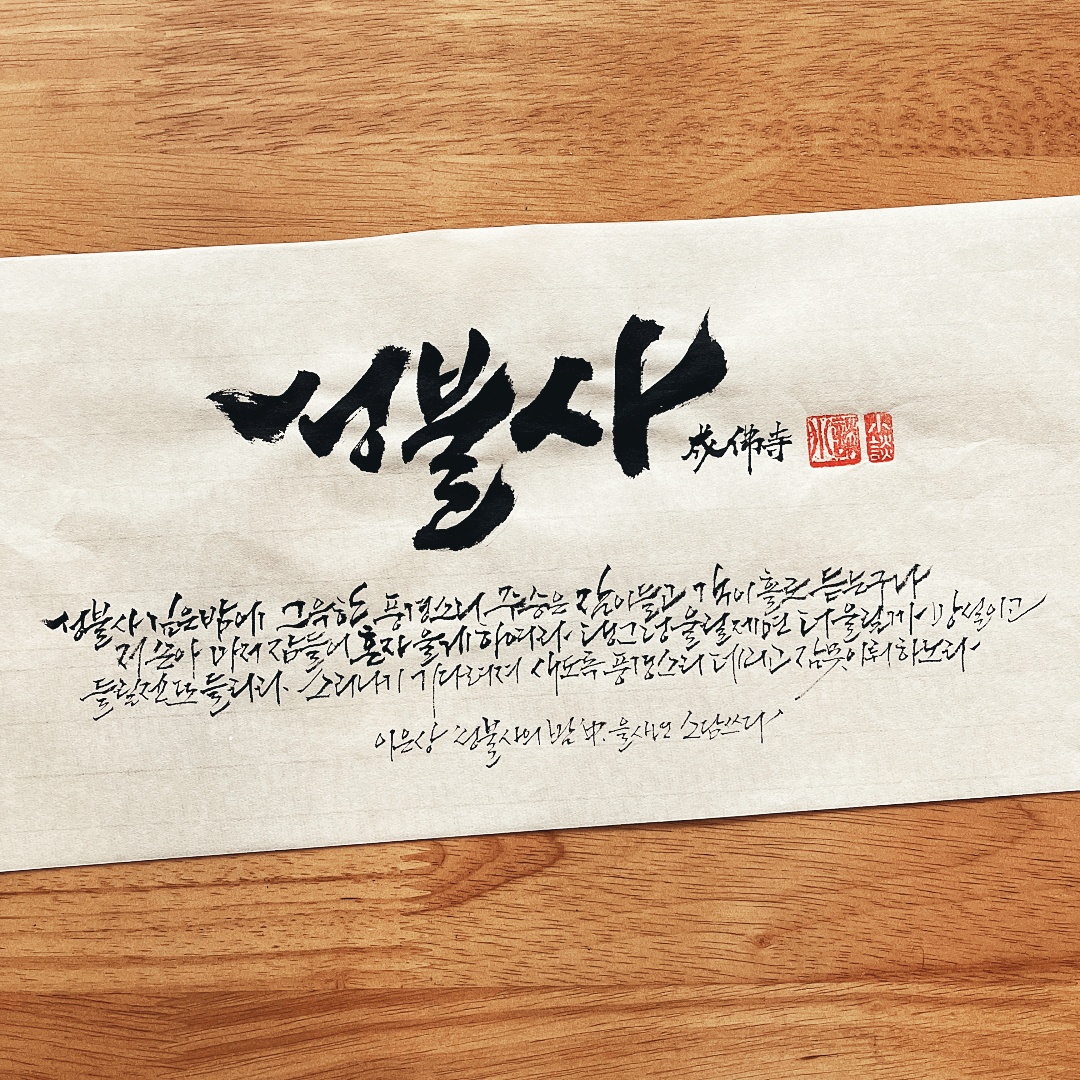 성불사
成佛寺
성불사 깊은 밤에 그윽한 풍경소리 주승은 잠이 들고 객이 홀로 듣는구나
저 손아 마저 잠들어 혼자 울게 하여라. 댕그렁 울릴제면 더 울릴까 맘 졸이고
들릴젠 또 들리라. 소리나기 기다려져 새도록 풍경소리 데리고 잠못이뤄 하노라.
이은상 성불사의 밤 中. 을사년 소담쓰다
小談